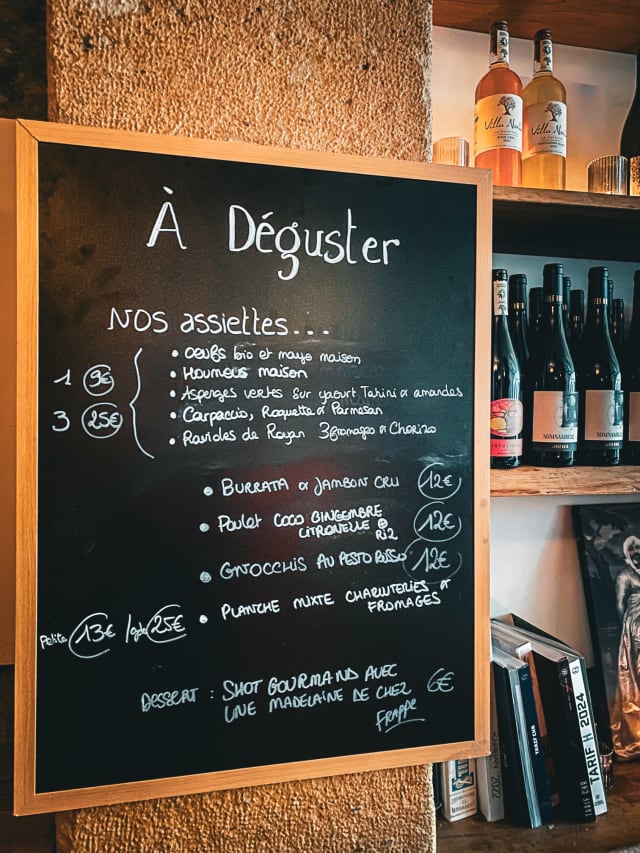 À Déguster
Nos assiettes...
1 9€
3 25€
• Oeufs bio et mayo maison
• Houmous maison
• Asperges vertes sur yaourt Tahini & amandes
• Carpaccio, Roquette & Parmesan
• Ravioles de Royan 3 fromages & Chorizo
• BURRATA & JAMBON CRU 12€
• Poulet COCO GINGEMBRE 12€
CITRONELLE
RIZ
• GNOCCHIS AU PESTO ROSSO 12€
• PLANCHE MIXTE CHARCUTERIES &
FROMAGES
Petite 13€ / gde 25€
DESSERT : SHOT GOURMAND AVEC 6€
UNE MADELAINE DE CHEZ
FRAPPE
Villa Noria
Villa Noria
SOMNAMBULE
SOMNAMBULE
TARIF CHR
TARIF H 2024
2022